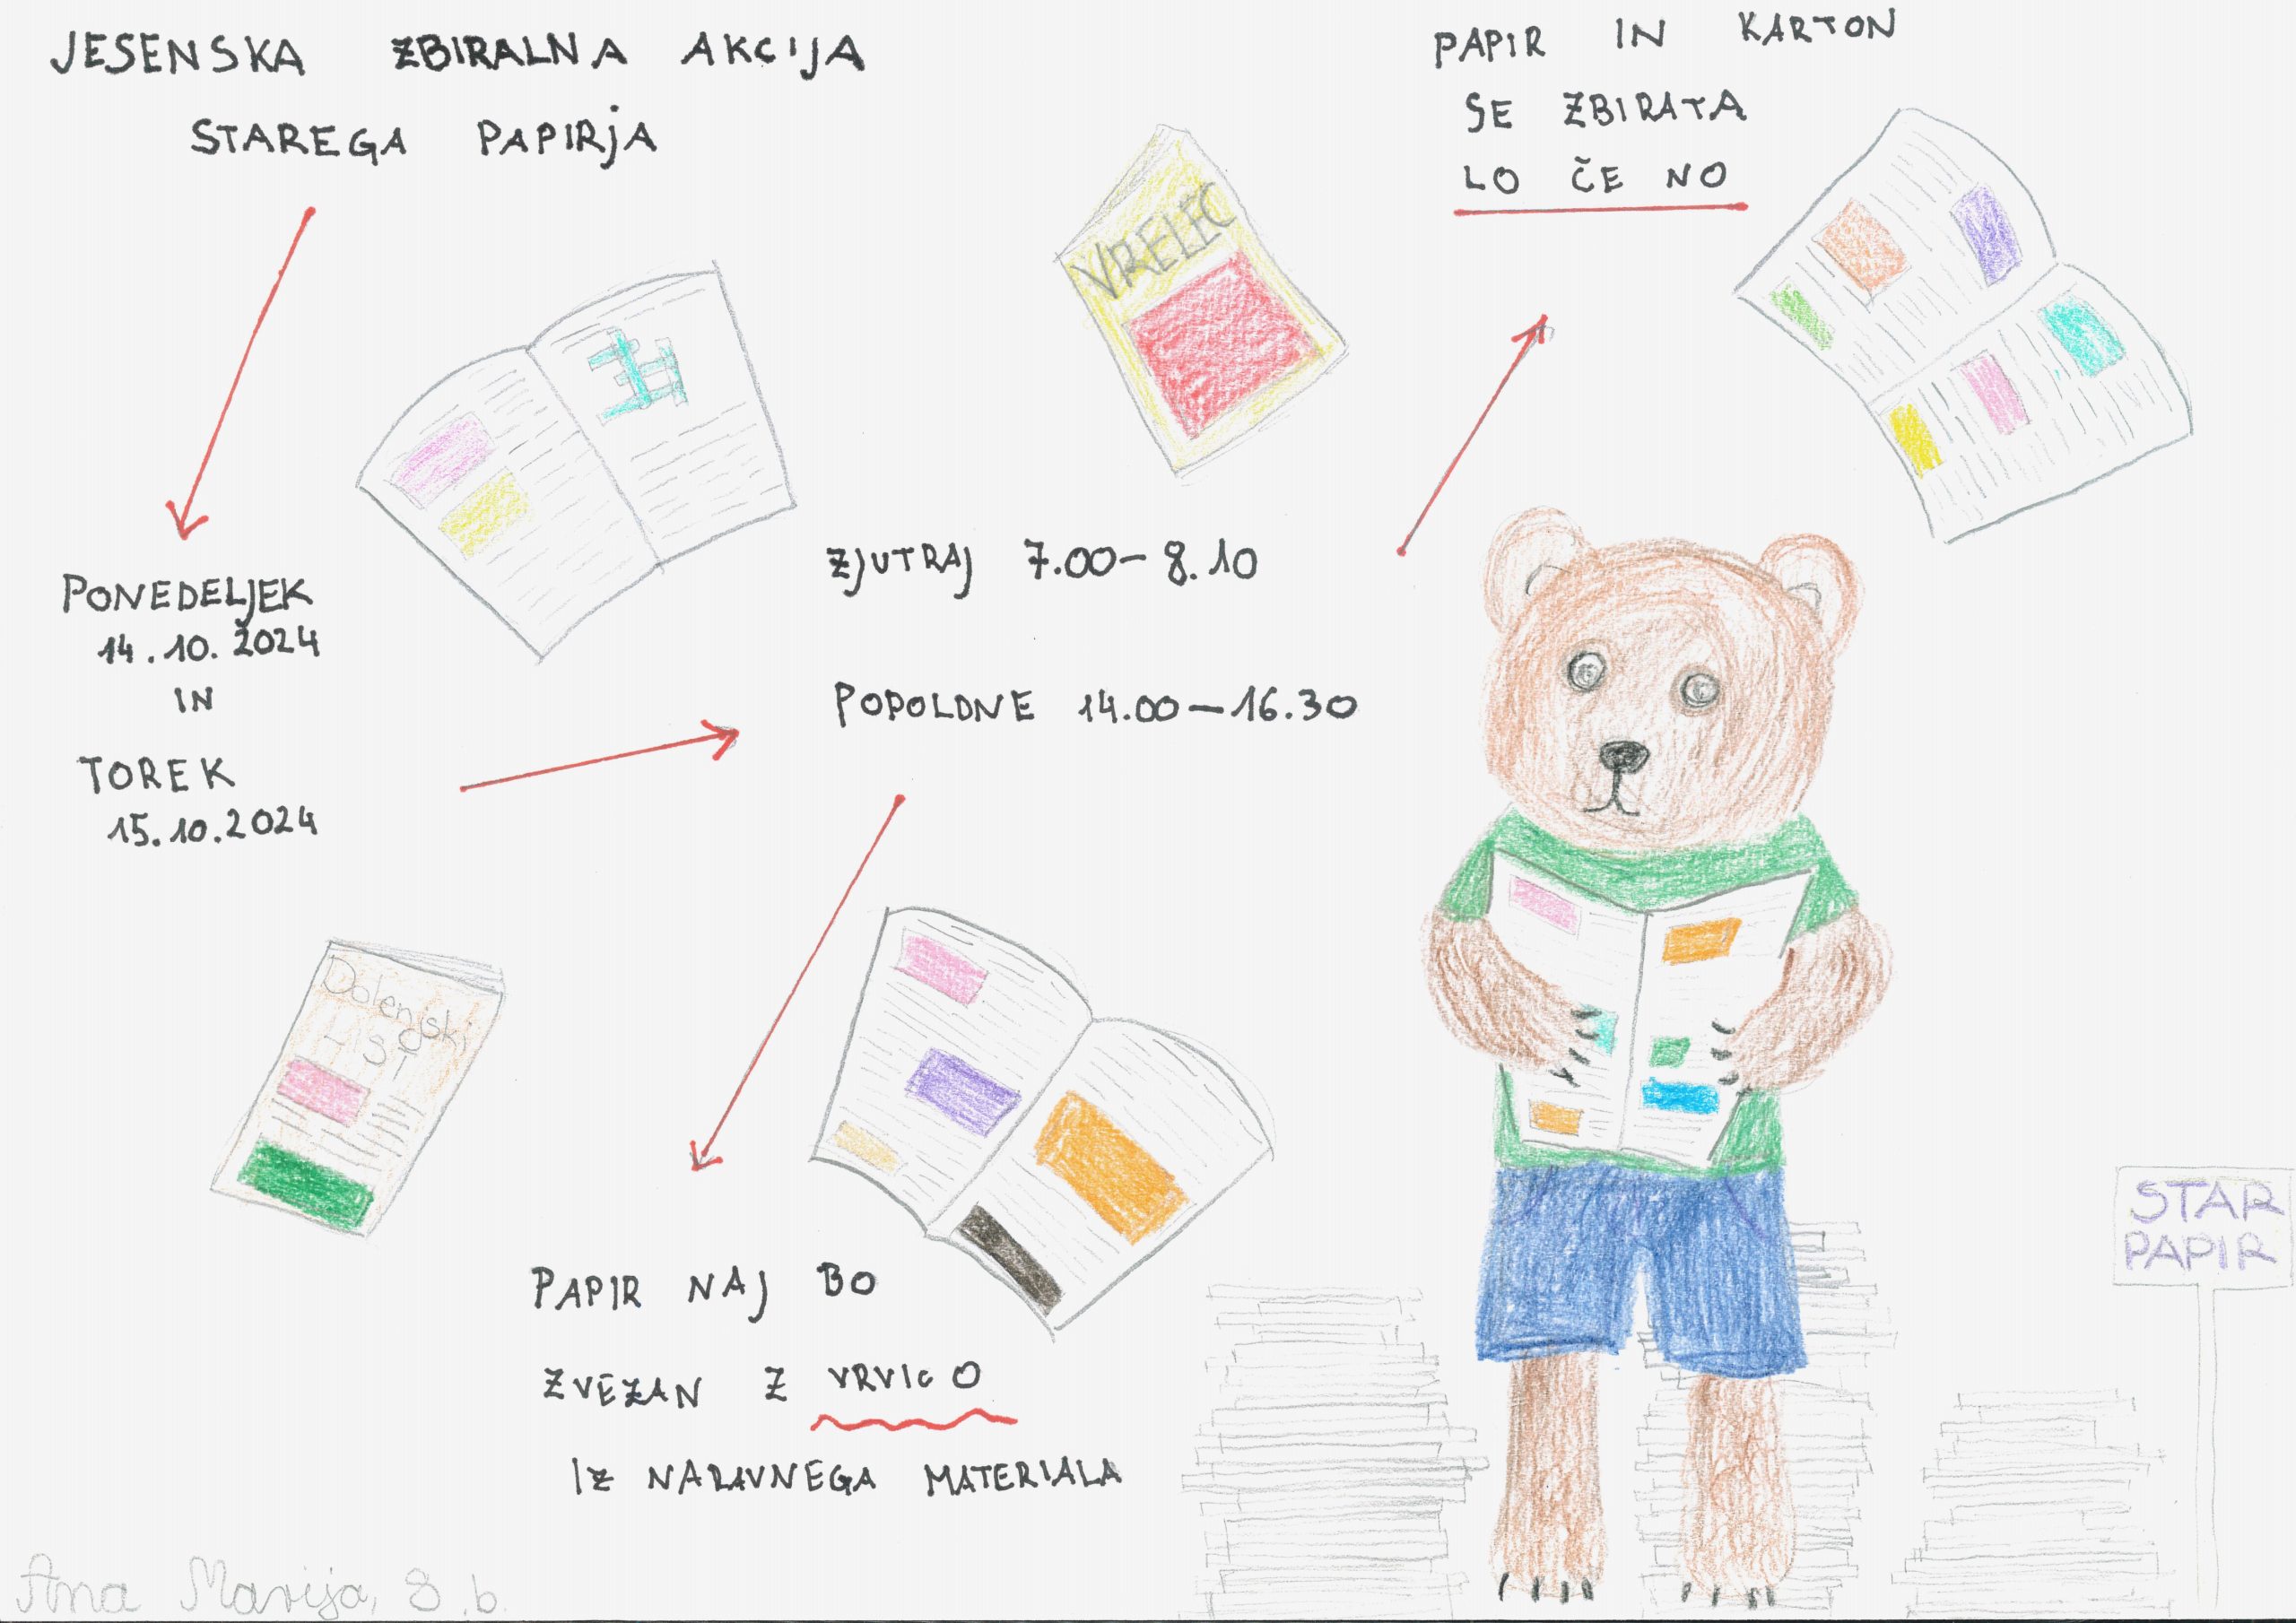 JESENSKA ZBIRALNA AKCIJA
STAREGA PAPIRJA
PONEDELJEK
14.10.2024
IN
TOREK
15.10.2024
ZJUTRAJ 7.00-8.10
POPOLDNE 14.00-16.30
PAPIR NAJ BO
ZVEZAN Z VRVICO
IZ NARAVNEGA MATERIALA
PAPIR IN KARTON
SE ZBIRATA
LO ČE NO
VRELEC
Dolenjski
LIST
STAR
PAPIR
Ana Marija, 8.b